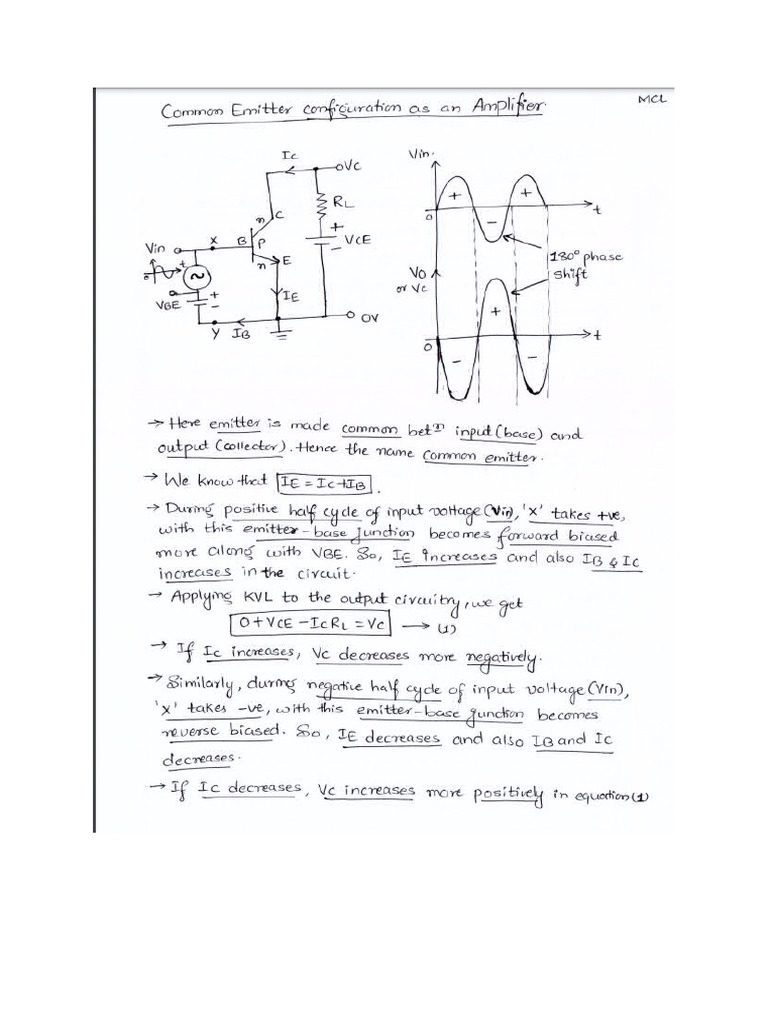 Common Emitter configuration as an Amplifier.
MCL
Ic
Vc
RL
+
VCE
-
n
C
B
P
n
E
X
Vin
+
VBE
+
-
IE
Y
IB
0V
Vin.
+
+
-
0
t
180° phase
shift
Vo
or Vc
+
0
-
-
t
→ Here emitter is made common betn input (base) and
output (collector). Hence the name common emitter.
→ We know that IE = Ic+IB.
→ During positive half cycle of input voltage (Vin), 'X' takes +ve,
with this emitter-base junction becomes forward biased
more along with VBE. So, IE increases and also IB & Ic
increases in the circuit.
→ Applying KVL to the output circuitry, we get
0+VCE-IcRL = Vc → (1)
→ If Ic increases, Vc decreases more negatively.
→ Similarly, during negative half cycle of input voltage (Vin),
'X' takes -ve, with this emitter-base junction becomes
reverse biased. So, IE decreases and also IB and Ic
decreases.
→ If Ic decreases, Vc increases more positively in equation (1)